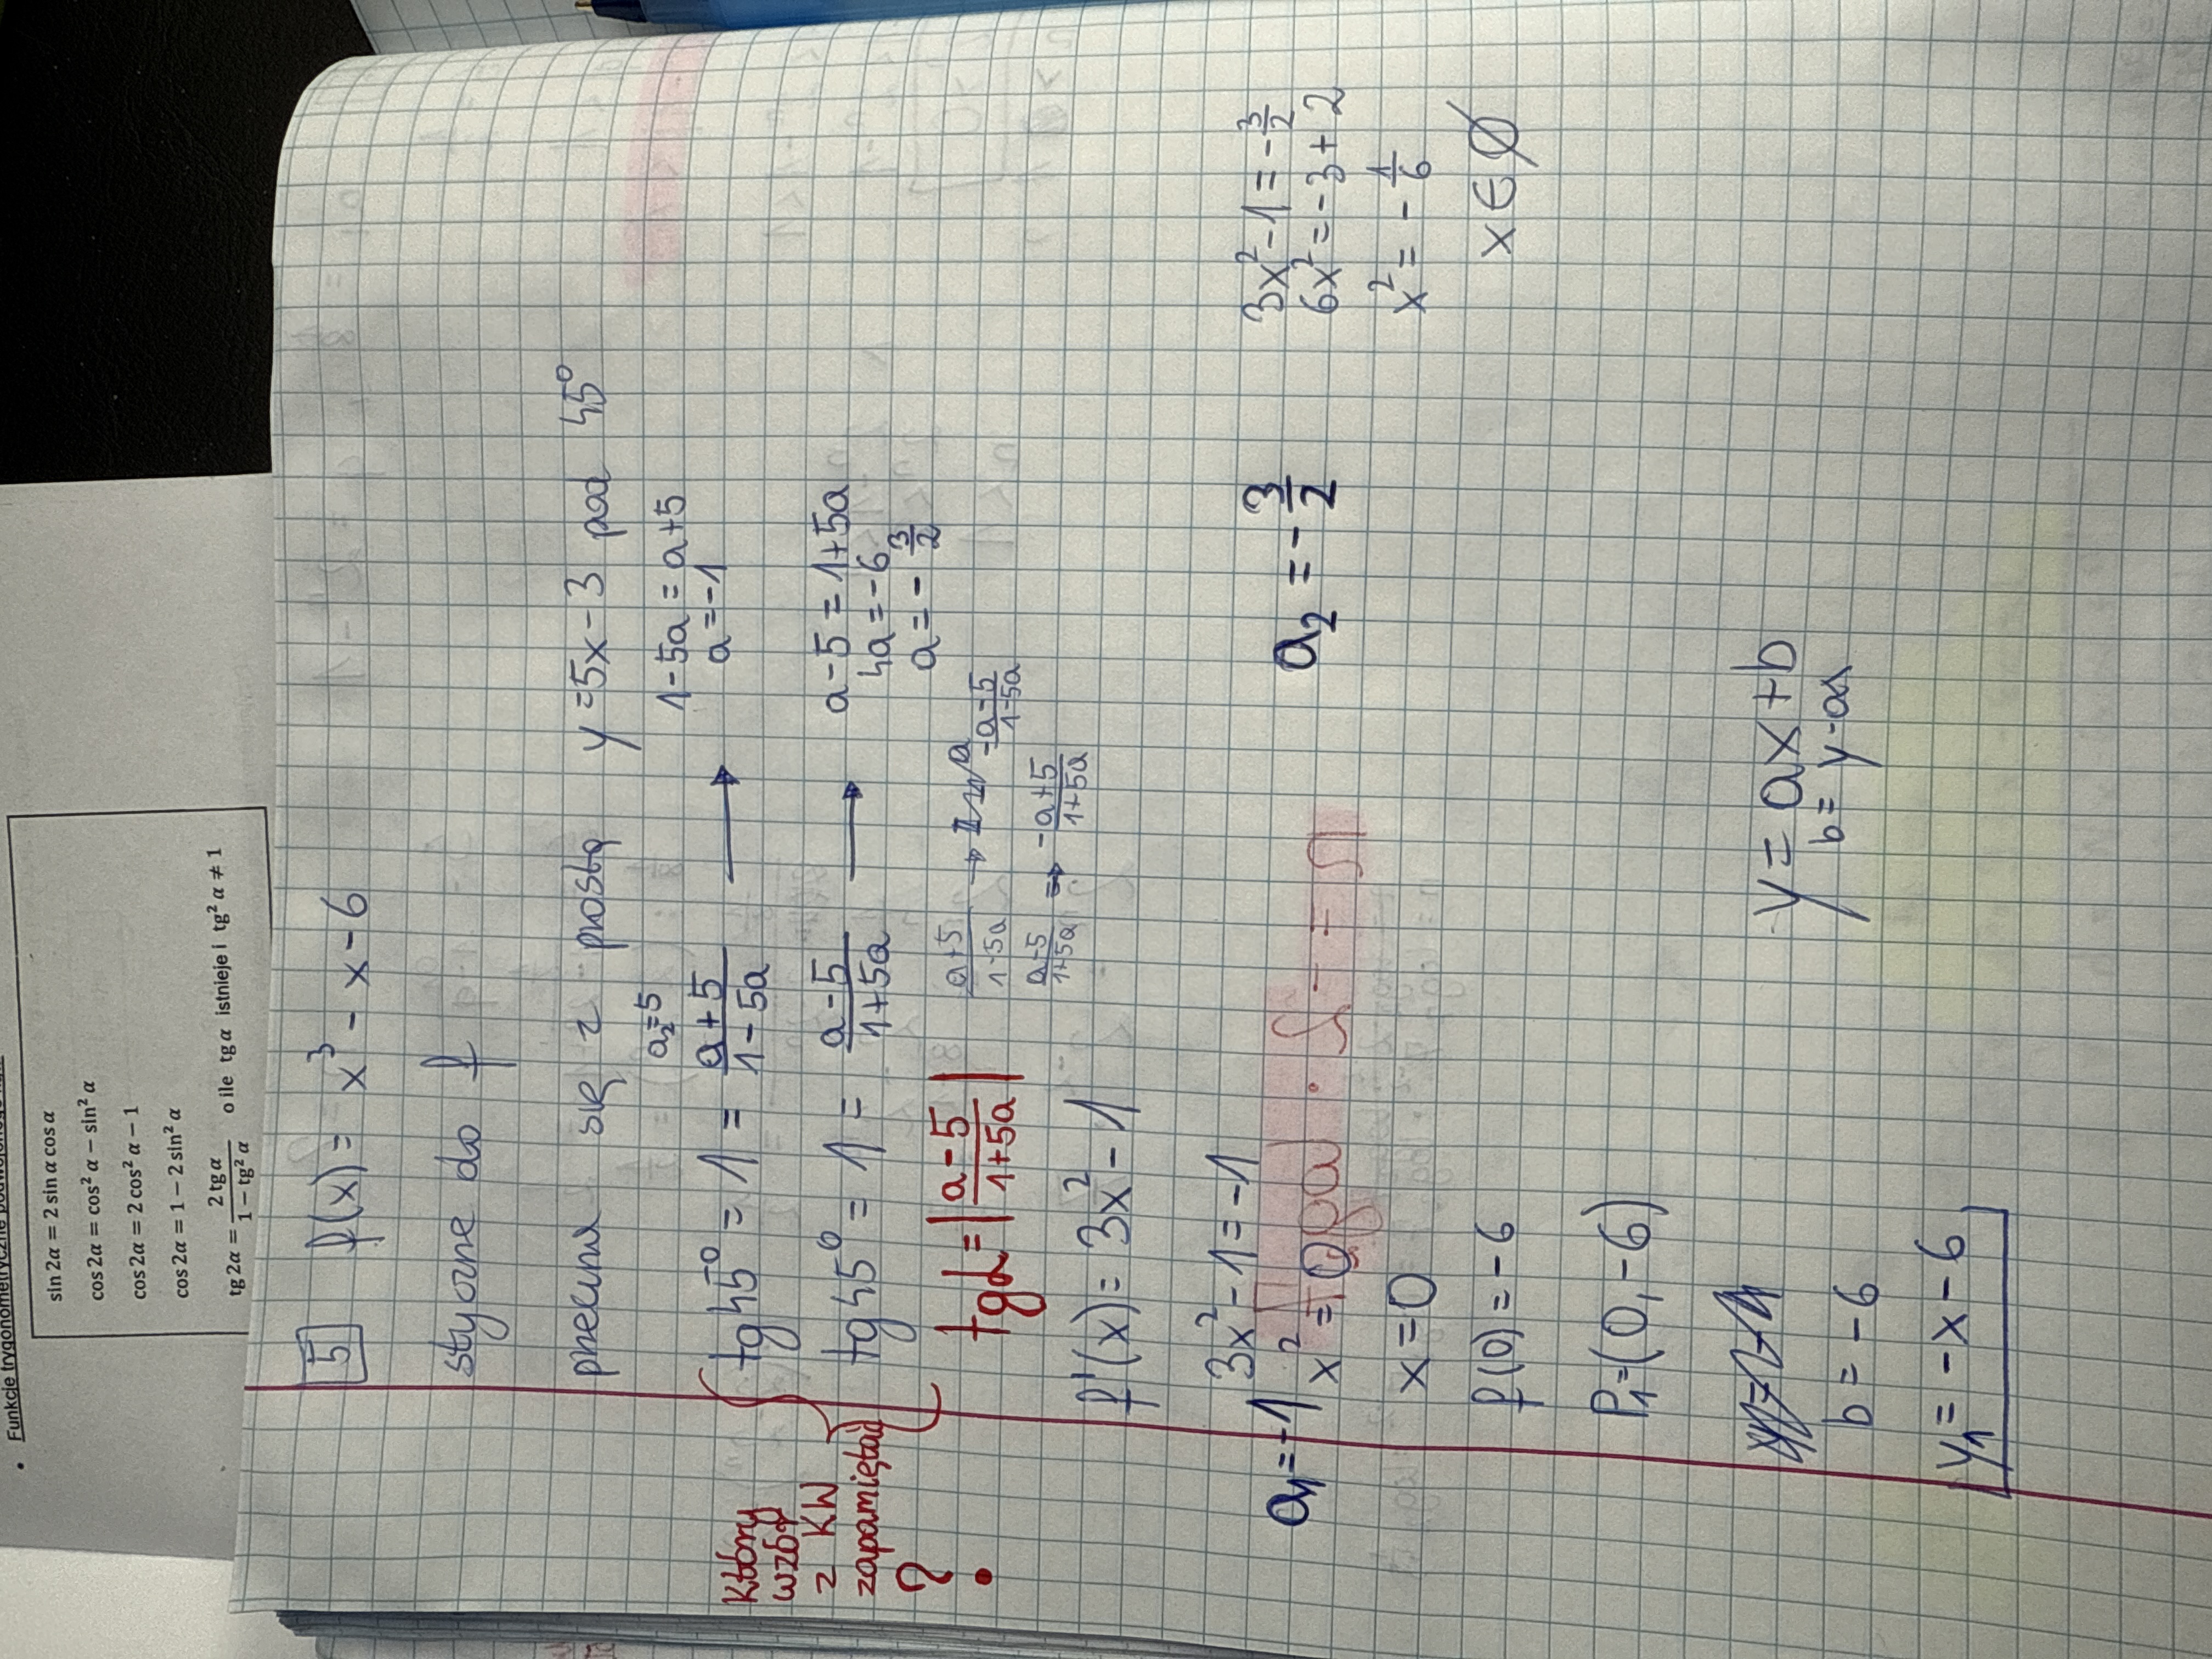 Funkcje trygonometryczne podwojonego kąta
sin 2α = 2 sin α cos α
cos 2α = cos² α − sin² α
cos 2α = 2 cos² α − 1
cos 2α = 1 − 2 sin² α
tg 2α = 2 tg α / (1 − tg² α) o ile tg α istnieje i tg² α ≠ 1
5 f(x) = x³ - x - 6
styczne do f
przecina się z prostą y = 5x - 3 pod 45°
a₂ = 5
tg45° = 1 = (a+5)/(1-5a) → 1-5a = a+5
a = -1
tg45° = 1 = (a-5)/(1+5a) → a-5 = 1+5a
4a = -6
a = -3/2
Który
wzór
z KW
zapamiętać
?
(a+5)/(1-5a) → (-a-5)/(1-5a)
tgα = |(a-5)/(1+5a)|
(a-5)/(1+5a) ⇒ (-a+5)/(1+5a)
f'(x) = 3x² - 1
a₁ = -1
3x² - 1 = -1
x² = 0
x = 0
f(0) = -6
P₁ = (0, -6)
b = -6
y₁ = -x - 6
a₂ = -3/2
3x² - 1 = -3/2
6x² = -3 + 2
x² = -1/6
x ∈ ∅
y = ax + b
b = y - ax